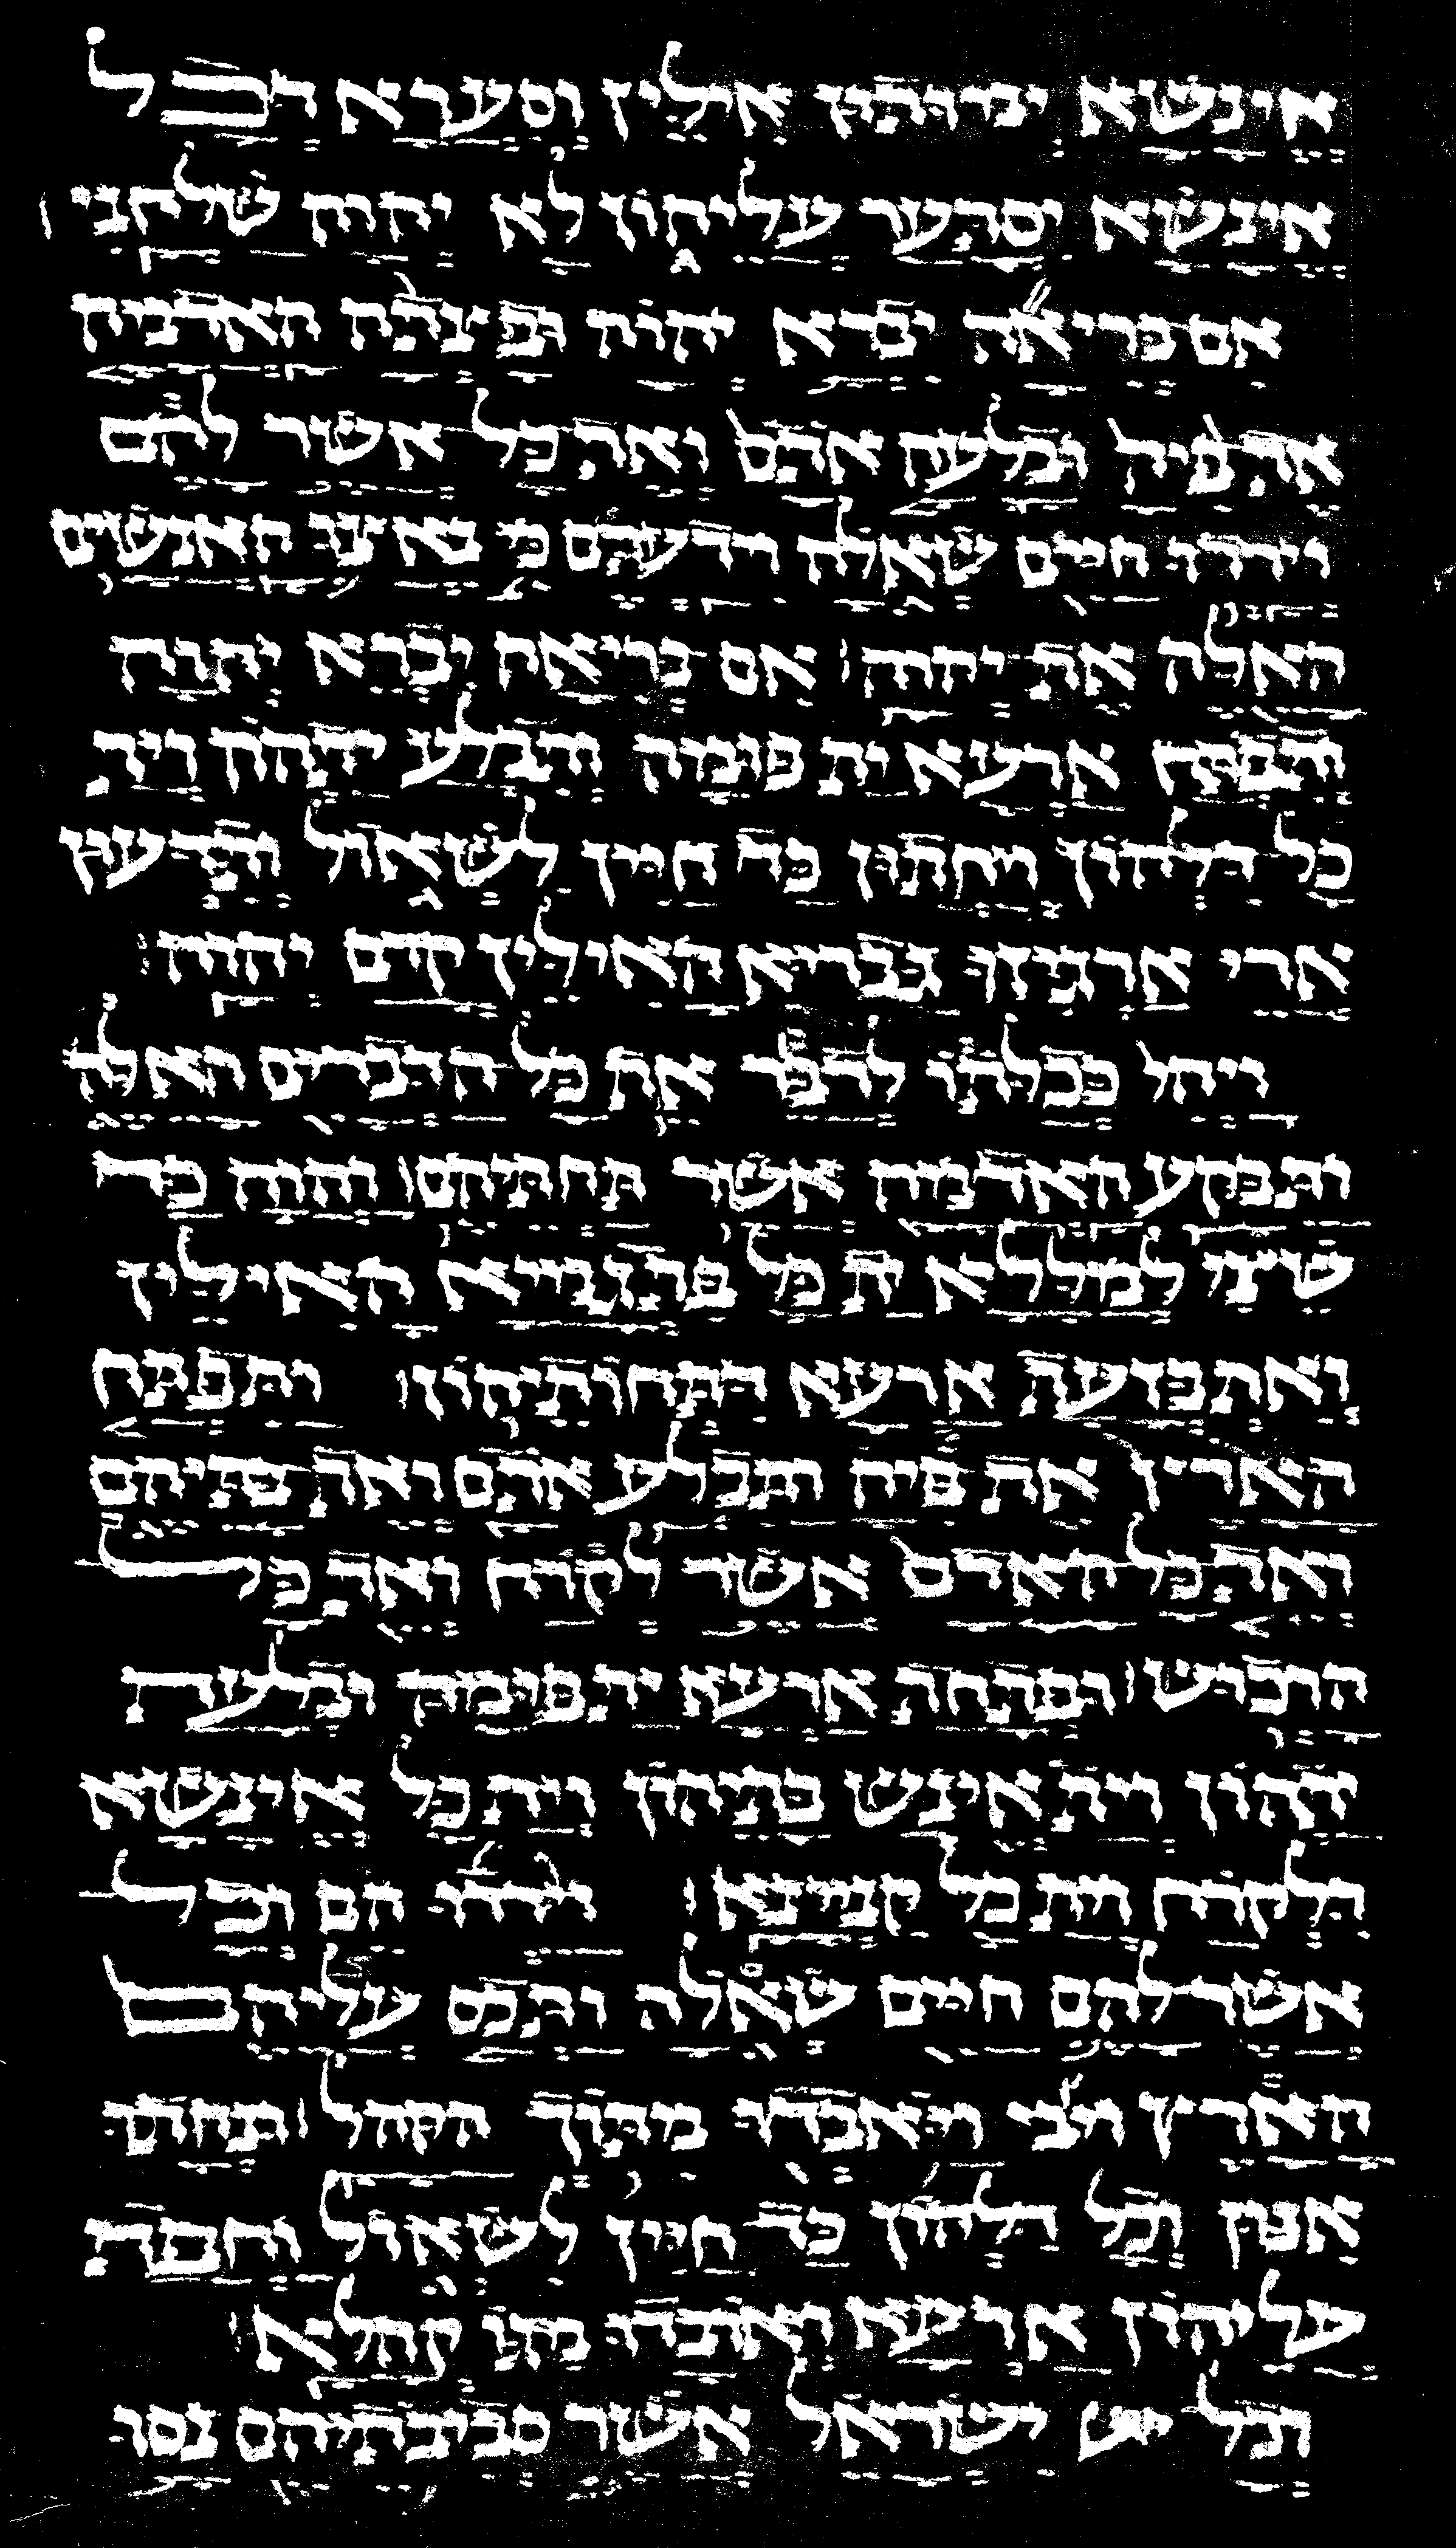 אינשא ימותון אילין וסערא דכל
אינשא יסתער עליהון לא יהוה שלחני׃
אם בריאה יברא יהוה ופצתה האדמה
את פיה ובלעה אתם ואת כל אשר להם
וירדו חיים שאלה וידעתם כי נאצו האנשים
האלה את יהוה׃ אם בריאה יברא יהוה
ותפתח ארעא ית פומה ותבלע יתהון וית
כל דלהון ויחתון כד חיין לשאול ותדעון
ארי ארגיזו גבריא האילין קדם יהוה׃
ויהי ככלתו לדבר את כל הדברים האלה
ותבקע האדמה אשר תחתיהם׃ והוה כד
שיצי למללא ית כל פתגמיא האילין
ואתבזעת ארעא דתחותיהון׃ ותפתח
הארץ את פיה ותבלע אתם ואת בתיהם
ואת כל האדם אשר לקרח ואת כל
הרכוש׃ ופתחת ארעא ית פומה ובלעת
יתהון וית אינש בתיהון וית כל אינשא
דלקרח וית כל קנינא׃ וירדו הם וכל
אשר להם חיים שאלה ותכס עליהם
הארץ ויאבדו מתוך הקהל׃ ונחתו
אנון וכל דלהון כד חיין לשאול וחפת
עליהון ארעא ואבדו מגו קהלא׃
וכל ישראל אשר סביבתיהם נסו